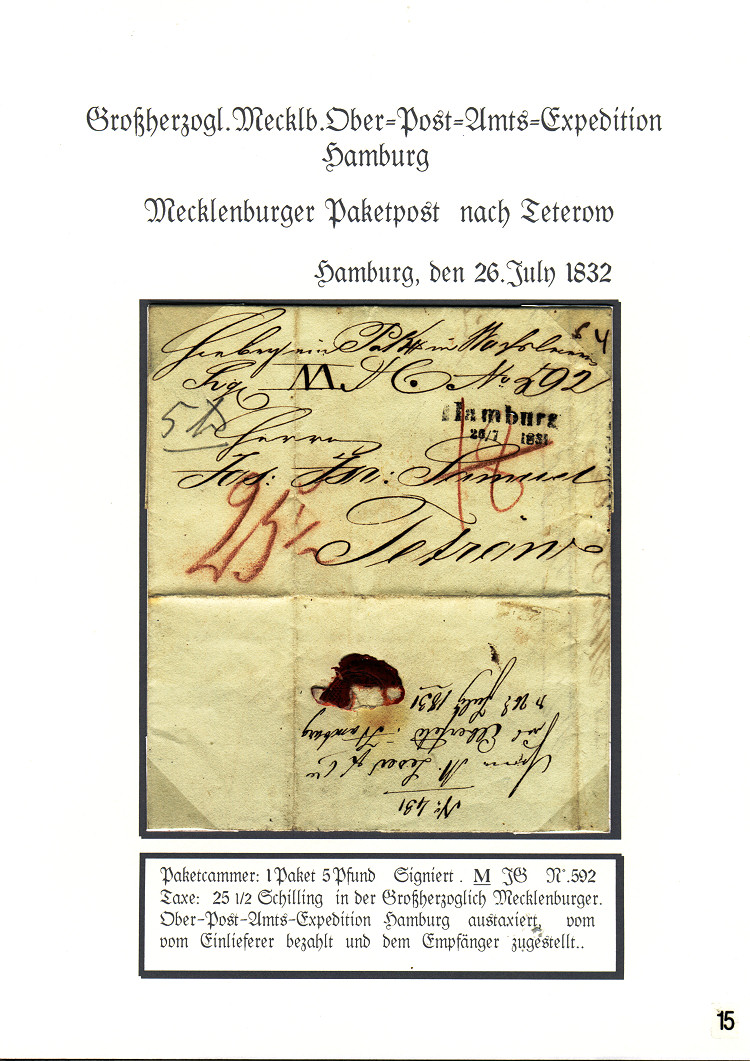 Großherzogl.Mecklb.Ober=Post=Amts=Expedition
Hamburg
Mecklenburger Paketpost nach Teterow
Hamburg, den 26.July 1832
4
M No 592
5 ℔
Hamburg
26/7 1831
Herrn
Jos: Isr: Samuel
25 1/2
Teterow
No: 431
Hamburg
26 July 1831
Paketcammer: 1 Paket 5 Pfund Signiert. M JG N°.592
Taxe: 25 1/2 Schilling in der Großherzoglich Mecklenburger.
Ober-Post-Amts-Expedition Hamburg austaxiert, vom
vom Einlieferer bezahlt und dem Empfänger zugestellt..
15